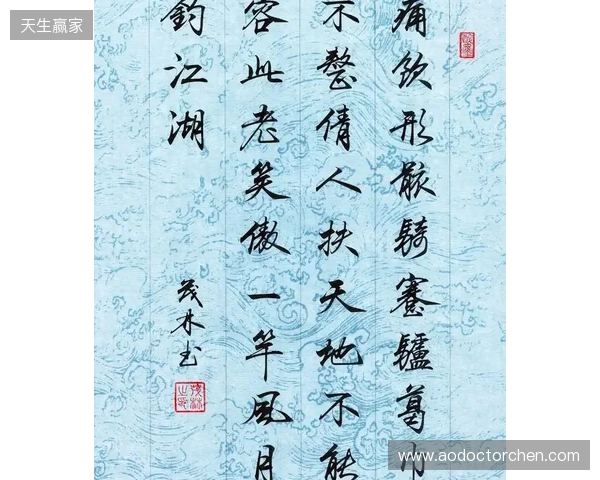 天生赢家
痛飲形骸騎蹇驢葛巾
不整倩人扶天地不能
容此老笑傲一竿風月
釣江湖
茂林书
www.aodoctorchen.com